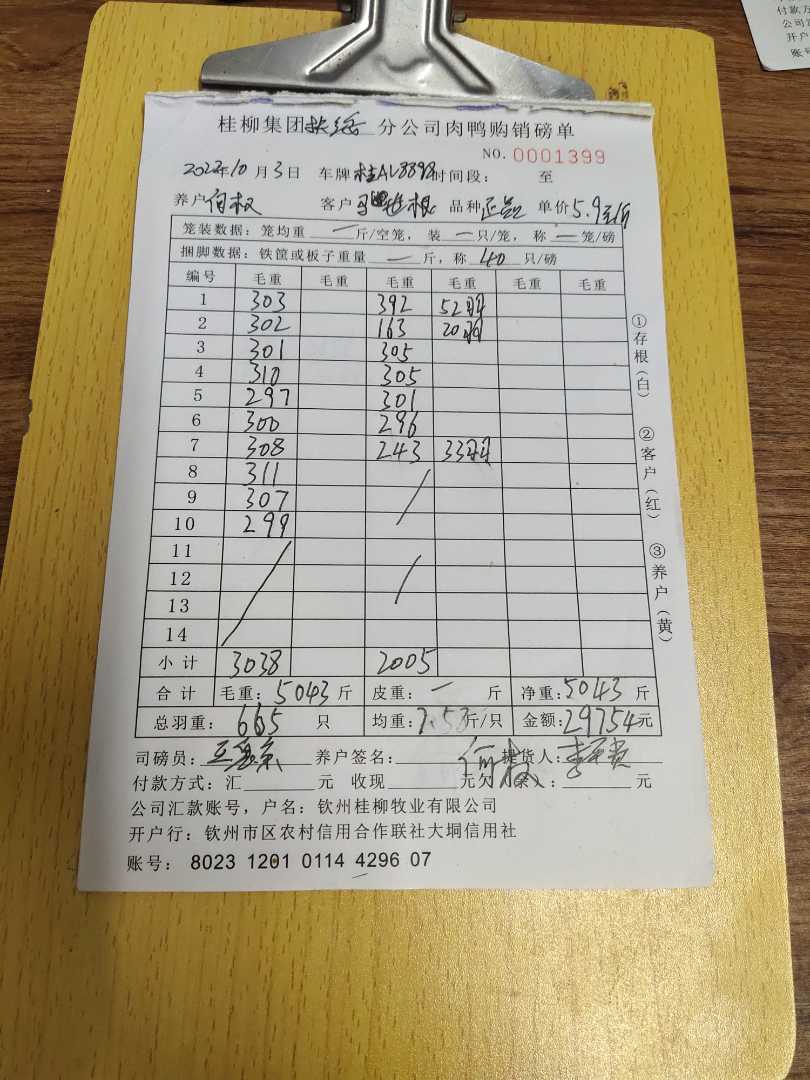 付款方
公司汇
开户
账号
桂柳集团 分公司肉鸭购销磅单
NO. 0001399
2022年10月3日 车牌桂AL8898时间段: 至
养户何权 客户 品种正品 单价5.9元/斤
笼装数据: 笼均重 一 斤/空笼, 装 一 只/笼, 称 一 笼/磅
捆脚数据: 铁筐或板子重量 一 斤, 称 40 只/磅
编号 毛重 毛重 毛重 毛重 毛重 毛重
1 303 392 52羽
2 302 163 20羽
3 301 305
4 310 305
5 297 301
6 300 296
7 308 243 33羽
8 311
9 307
10 299
11
12
13
14
小计 3038 2005
合计 毛重: 5043 斤 皮重: 一 斤 净重: 5043 斤
总羽重: 665 只 均重: 7.58斤/只 金额: 29754元
司磅员: 养户签名: 何权 提货人: 李
付款方式: 汇 元 收现 元欠 条人: 元
公司汇款账号, 户名: 钦州桂柳牧业有限公司
开户行: 钦州市区农村信用合作联社大垌信用社
账号: 8023 1201 0114 4296 07
①存根(白)
②客户(红)
③养户(黄)